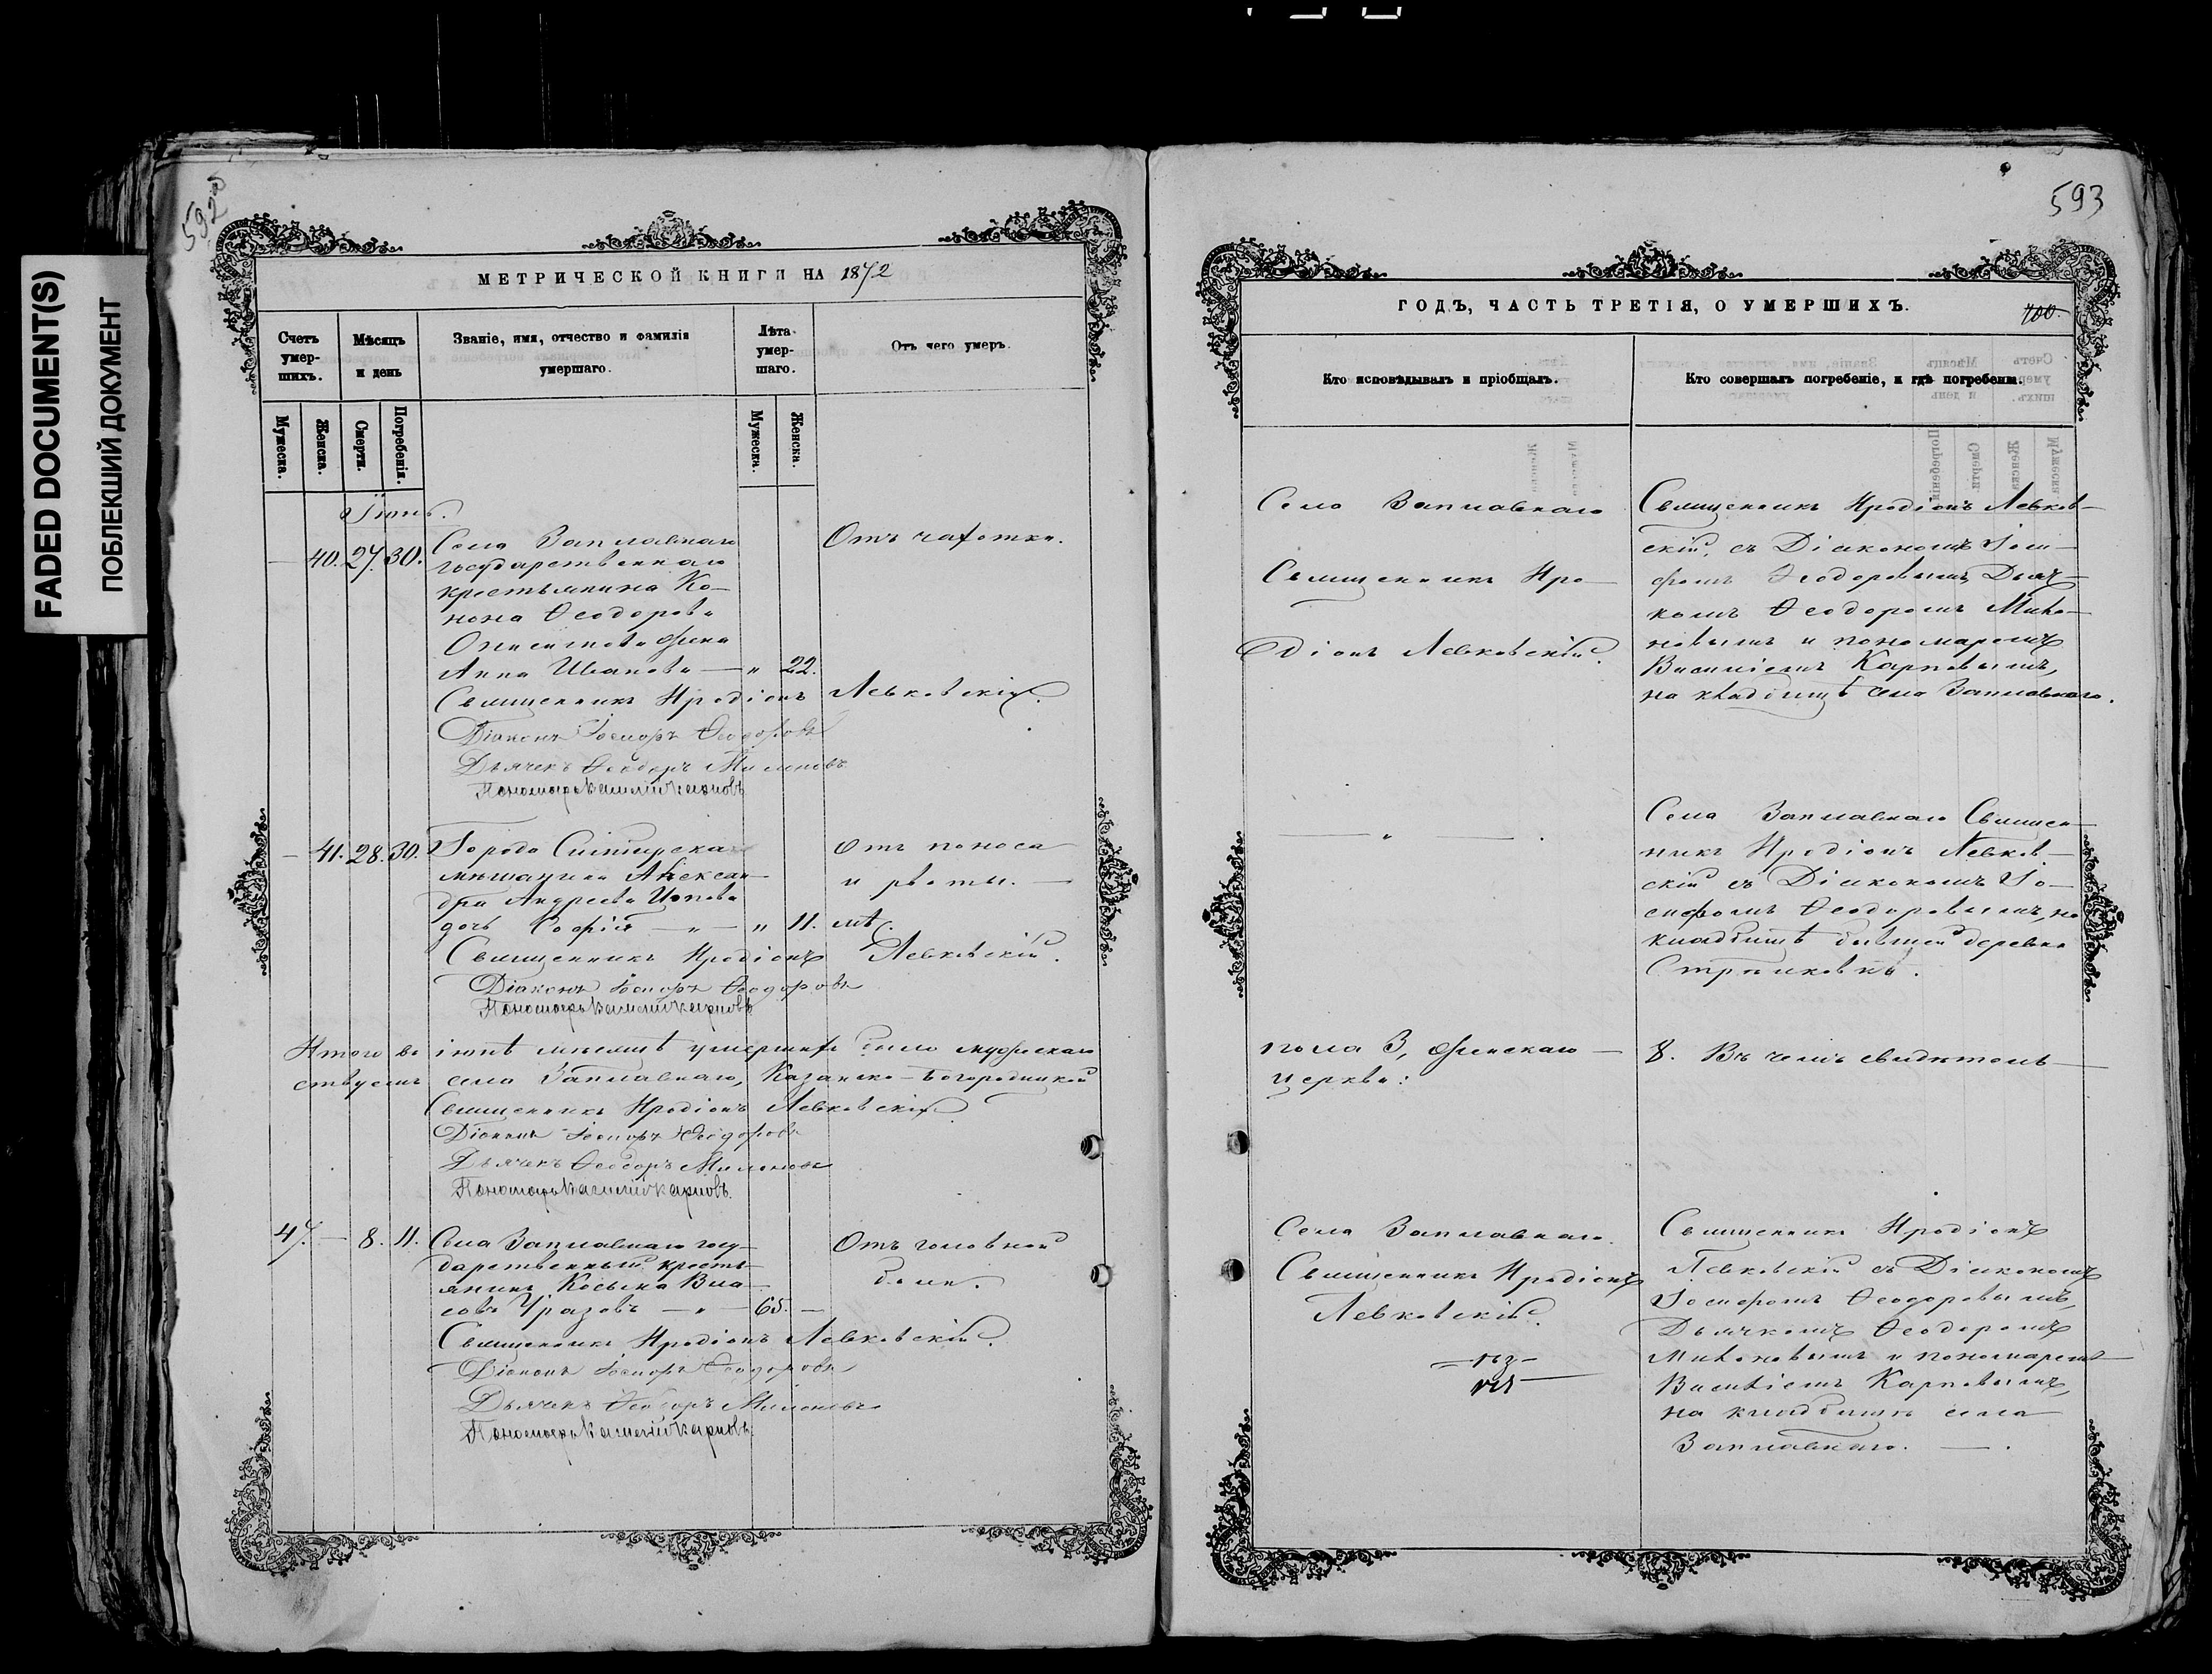 FADED DOCUMENT(S)
ПОБЛЕКШИЙ ДОКУМЕНТ
592
МЕТРИЧЕСКОЙ КНИГИ НА 1872
Счетъ умер-шихъ.
Мѣсяцъ и день
Званіе, имя, отчество и фамилія умершаго.
Лѣта умер-шаго.
Отъ чего умеръ.
Мужеска.
Женска.
Смерти.
Погребенія.
Мужеска.
Женска.
Іюнь.
— 40. 27. 30. Села Заплавнаго Отъ чахотки.
государственнаго
крестьянина Ко-
нона Ѳеодорова
жена
Анна Иванова — " 22.
Священникъ Иродіонъ Левковскій.
Діаконъ Іосифъ Ѳеодоровъ
Дьячекъ Ѳеодоръ Милоновъ
Пономарь Василій Карповъ
— 41. 28. 30. Города Отъ поноса
мѣщанина Алексан- и рвоты. —
дра Андреева
дочь Софія — " — " 11. мѣс.
Священникъ Иродіонъ Левковскій.
Діаконъ Іосифъ Ѳеодоровъ
Пономарь Василій Карповъ
Итого въ іюнѣ мѣсяцѣ умершихъ было мужескаго
ствуемъ села Заплавнаго, Казанско-Богородицкой
Священникъ Иродіонъ Левковскій
Діаконъ Іосифъ Ѳеодоровъ
Дьячекъ Ѳеодоръ Милоновъ
Пономарь Василій Карповъ.
47. — 8. 11. Села Заплавнаго госу- Отъ головной
дарственный кресть- боли.
янинъ Косьма Вла-
совъ Уразовъ — " — 65. —
Священникъ Иродіонъ Левковскій.
Діаконъ Іосифъ Ѳеодоровъ
Дьячекъ Ѳеодоръ Милоновъ
Пономарь Василій Карповъ
593
ГОДЪ, ЧАСТЬ ТРЕТІЯ, О УМЕРШИХЪ.
400.
Кто исповѣдывалъ и пріобщалъ.
Кто совершалъ погребеніе, и гдѣ погребены.
Села Заплавнаго
Священникъ Иро-
діонъ Левковскій.
Священникъ Иродіонъ Левков-
скій, съ Діакономъ Іоси-
фомъ Ѳеодоровымъ, Дьяч-
комъ Ѳеодоромъ Мило-
новымъ и пономаремъ
Василіемъ Карповымъ,
на кладбищѣ села Заплавнаго.
— " — .
Села Заплавнаго Священ-
никъ Иродіонъ Левков-
скій съ Діакономъ Іо-
сифомъ Ѳеодоровымъ, на
кладбищѣ бывшей деревни
пола 3, женскаго — 8. Въ чемъ свидѣтель-
церкви:
Села Заплавнаго.
Священникъ Иродіонъ
Левковскій.
Священникъ Иродіонъ
Левковскій съ Діакономъ
Іосифомъ Ѳеодоровымъ,
Дьячкомъ Ѳеодоромъ
Милоновымъ и пономаремъ
Василіемъ Карповымъ,
на кладбищѣ села
Заплавнаго. — .